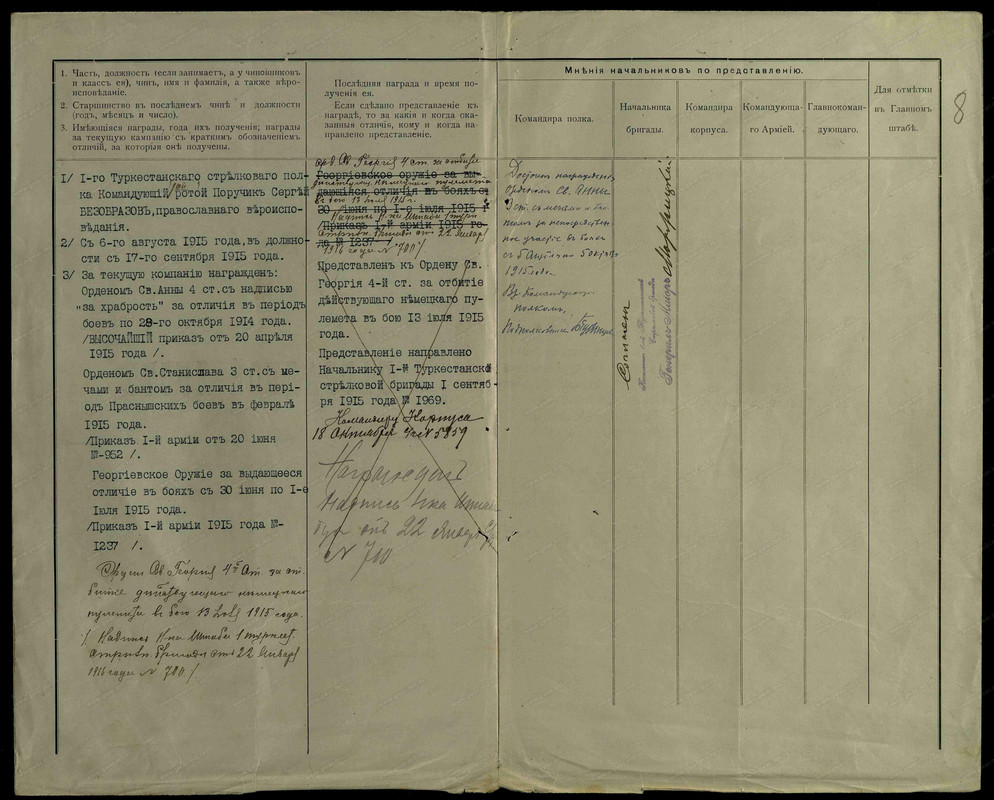 1. Часть, должность (если занимаетъ, а у чиновниковъ
и классъ ея), чинъ, имя и фамилія, а также вѣро-
исповѣданіе.
2. Старшинство въ послѣднемъ чинѣ и должности
(годъ, мѣсяцъ и число).
3. Имѣющіяся награды, года ихъ полученія; награды
за текущую кампанію съ краткимъ обозначеніемъ
отличій, за которыя онѣ получены.
Послѣдняя награда и время по-
лученія ея.
Если сдѣлано представленіе къ
наградѣ, то за какія и когда ока-
занныя отличія, кому и когда на-
правлено представленіе.
Мнѣнія начальниковъ по представленію.
Командира полка.
Начальника
бригады.
Командира
корпуса.
Командующа-
го Арміей.
Главнокоман-
дующаго.
Для отмѣтки
въ Главномъ
штабѣ.
8
1/ 1-го Туркестанскаго стрѣлковаго пол-
ка Командующій ротой Поручикъ Сергѣй
БЕЗОБРАЗОВЪ,православнаго вѣроиспо-
вѣданія.
2/ Съ 6-го августа 1915 года,въ должно-
сти съ 17-го сентября 1915 года.
3/ За текущую компанію награжденъ:
Орденомъ Св.Анны 4 ст.съ надписью
"за храбрость" за отличія въ періодъ
боевъ по 28-го октября 1914 года.
/ВЫСОЧАЙШІЙ приказъ отъ 20 апрѣля
1915 года /.
Орденомъ Св.Станислава 3 ст.съ ме-
чами и бантомъ за отличія въ пері-
одъ Праснышскихъ боевъ въ февралѣ
1915 года.
/Приказъ I-й арміи отъ 20 іюня
№-952 /.
Георгіевское Оружіе за выдающееся
отличіе въ бояхъ съ 30 іюня по I-е
Іюля 1915 года.
/Приказъ I-й арміи 1915 года №-
1237 /.
Орден Св Георгія 4й ст. за от-
битіе действующаго немецкаго
пулемета въ бою 13 іюля 1915 года.
/ Надпись Н-ка Штаба 1 Туркест.
стрѣлк. бригады отъ 22 Января
1916 года № 700 /
орд. Св Георгія 4 ст. за отбитіе
Георгіевское оружіе за вы-
действующ. немецкаго пулемета
дающіяся отличія въ бояхъ съ
въ бою 13 іюля 1915 г.
30 /іюня по I-е іюля 1915 г
/Надпись Н-ка Штаба 1 Турк
/Приказъ I-й арміи 1915 го-
стрѣлк. бригады отъ 22 Января
да № 1237 /
1916 года № 700 /
Представленъ къ Ордену Св.
Георгія 4-й ст. за отбитіе
дѣйствующаго нѣмецкаго пу-
лемета въ бою 13 іюля 1915
года.
Представленіе направлено
Начальнику I-й Туркестанско
стрѣлковой бригады I сентяб-
ря 1915 года № 1969.
Командиру Корпуса
18 Октября № 5859
Награжденъ
Надпись Н-ка Штаба
отъ 22 Января
№ 700
Достоин награжденія
орденомъ Св. Анны
3 ст. съ мечами и бан-
томъ за непосредствен-
ное участіе въ бояхъ
съ 5 Апрѣля по 5 октября
1915 года
Вр. Командующій
полкомъ,
Подполковникъ
Согласенъ
Генералъ-Маіоръ